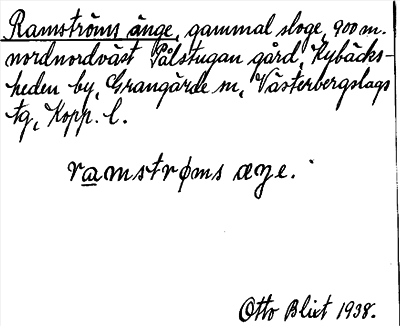 Ramströms änge, gammal sloge, 900 m.
nordnordväst Pålstugan gård, Nybäcks-
heden by, Grangärde sn, Västerbergslags
tg, Kopp. l.
ramstrøms æŋe.
Otto Blixt 1938.